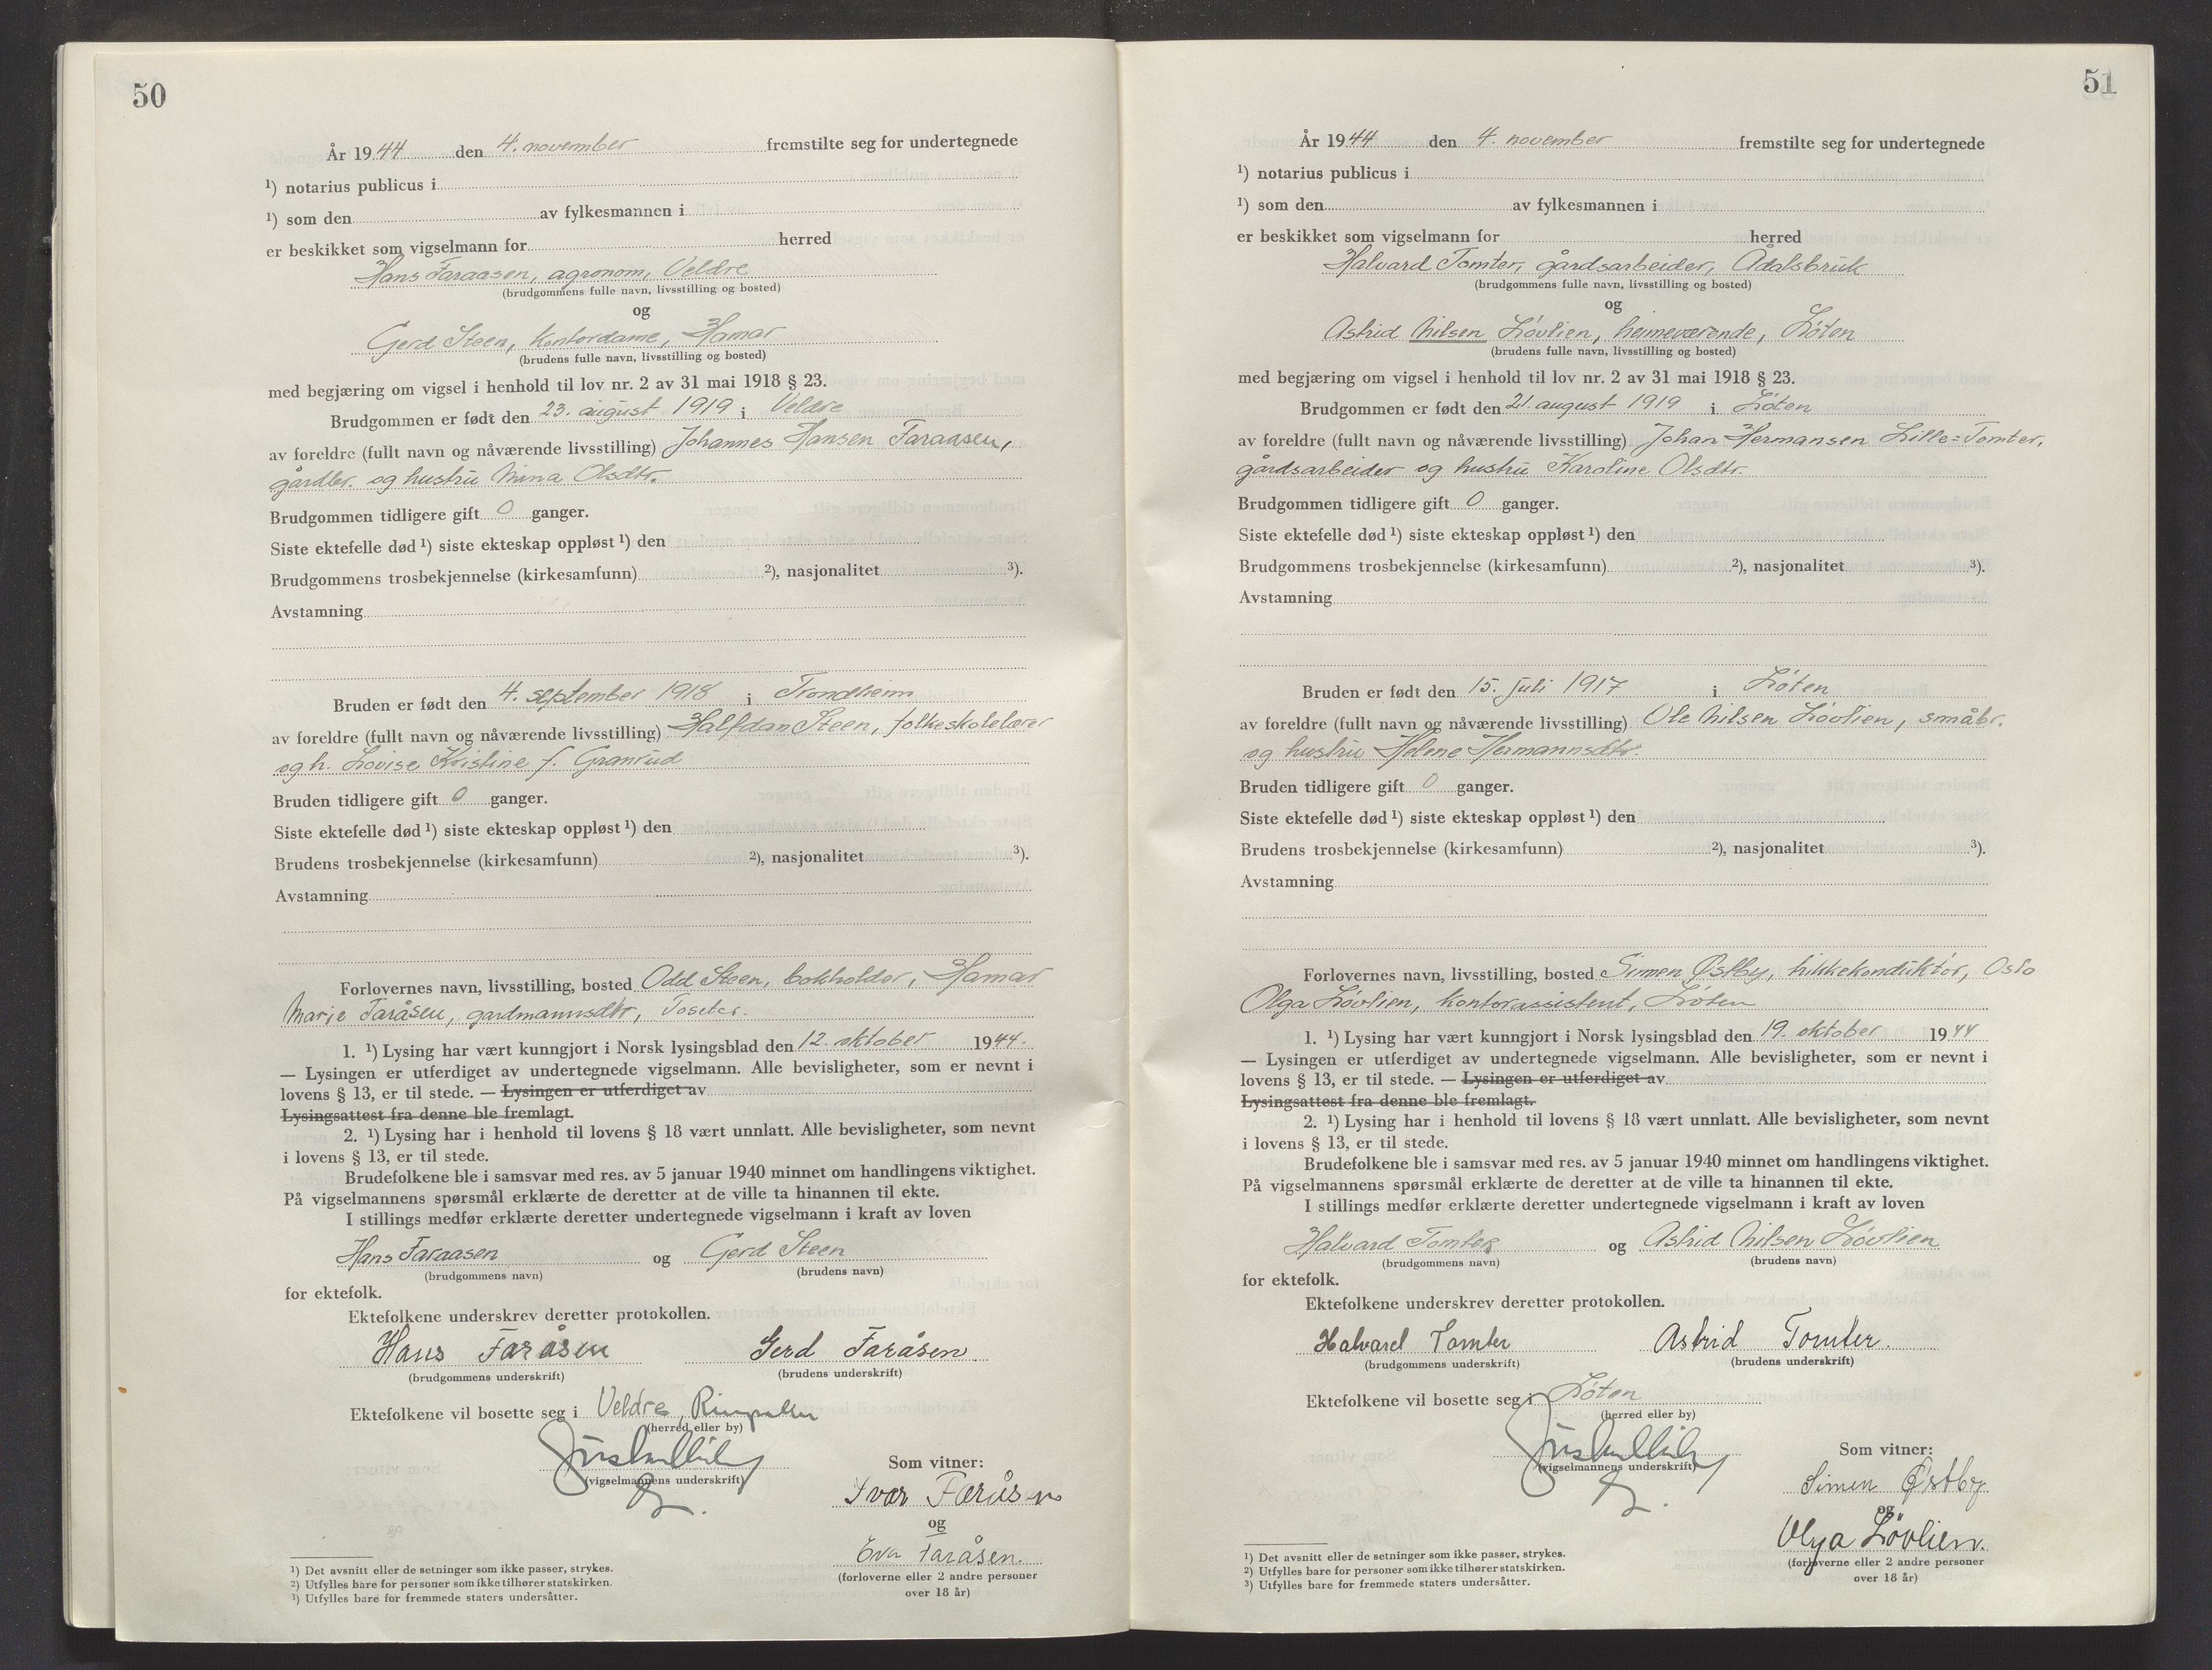 50
År 1944 den 4. november fremstilte seg for undertegnede
¹) notarius publicus i
¹) som den av fylkesmannen i
er beskikket som vigselmann for herred
Hans Faraasen, agronom, Veldre
(brudgommens fulle navn, livsstilling og bosted)
og
Gerd Steen, kontordame, Hamar
(brudens fulle navn, livsstilling og bosted)
med begjæring om vigsel i henhold til lov nr. 2 av 31 mai 1918 § 23.
Brudgommen er født den 23. august 1919 i Veldre
av foreldre (fullt navn og nåværende livsstilling) Johannes Hansen Faraasen,
gårdbr. og hustru Nina Olsdtr.
Brudgommen tidligere gift 0 ganger.
Siste ektefelle død ¹) siste ekteskap oppløst ¹) den
Brudgommens trosbekjennelse (kirkesamfunn) ²), nasjonalitet ³).
Avstamning
Bruden er født den 4. september 1918 i Trondheim
av foreldre (fullt navn og nåværende livsstilling) Halfdan Steen, folkeskolelærer
og h. Lovise Kristine f. Granrud
Bruden tidligere gift 0 ganger.
Siste ektefelle død ¹) siste ekteskap oppløst ¹) den
Brudens trosbekjennelse (kirkesamfunn) ²), nasjonalitet ³).
Avstamning
Forlovernes navn, livsstilling, bosted Odd Steen, bokholder, Hamar
Marie Faråsen, gardmannsdtr, Foseter.
1. ¹) Lysing har vært kunngjort i Norsk lysingsblad den 12. oktober 1944.
— Lysingen er utferdiget av undertegnede vigselmann. Alle bevisligheter, som er nevnt i
lovens § 13, er til stede. — Lysingen er utferdiget av
Lysingsattest fra denne ble fremlagt.
2. ¹) Lysing har i henhold til lovens § 18 vært unnlatt. Alle bevisligheter, som nevnt
i lovens § 13, er til stede.
Brudefolkene ble i samsvar med res. av 5 januar 1940 minnet om handlingens viktighet.
På vigselmannens spørsmål erklærte de deretter at de ville ta hinannen til ekte.
I stillings medfør erklærte deretter undertegnede vigselmann i kraft av loven
Hans Faraasen og Gerd Steen
(brudgommens navn) (brudens navn)
for ektefolk.
Ektefolkene underskrev deretter protokollen.
Hans Faråsen Gerd Faråsen
(brudgommens underskrift) (brudens underskrift)
Ektefolkene vil bosette seg i Veldre, Ringsaker
(herred eller by)
(vigselmannens underskrift)
Som vitner:
Ivar Faråsen
og
Eva Faråsen.
(forloverne eller 2 andre personer
over 18 år)
¹) Det avsnitt eller de setninger som ikke passer, strykes.
²) Utfylles bare for personer som ikke tilhører statskirken.
³) Utfylles bare for fremmede staters undersåtter.
51
År 1944 den 4. november fremstilte seg for undertegnede
¹) notarius publicus i
¹) som den av fylkesmannen i
er beskikket som vigselmann for herred
Halvard Tomter, gårdsarbeider, Ådalsbruk
(brudgommens fulle navn, livsstilling og bosted)
og
Astrid Nilsen Løvlien, heimeværende, Løten
(brudens fulle navn, livsstilling og bosted)
med begjæring om vigsel i henhold til lov nr. 2 av 31 mai 1918 § 23.
Brudgommen er født den 21. august 1919 i Løten
av foreldre (fullt navn og nåværende livsstilling) Johan Hermansen Lille-Tomter,
gårdsarbeider og hustru Karoline Olsdtr.
Brudgommen tidligere gift 0 ganger.
Siste ektefelle død ¹) siste ekteskap oppløst ¹) den
Brudgommens trosbekjennelse (kirkesamfunn) ²), nasjonalitet ³).
Avstamning
Bruden er født den 15. juli 1917 i Løten
av foreldre (fullt navn og nåværende livsstilling) Ole Nilsen Løvlien, småbr.
og hustru Helene Hermannsdtr.
Bruden tidligere gift 0 ganger.
Siste ektefelle død ¹) siste ekteskap oppløst ¹) den
Brudens trosbekjennelse (kirkesamfunn) ²), nasjonalitet ³).
Avstamning
Forlovernes navn, livsstilling, bosted Simen Østby, trikkekonduktør, Oslo
Olga Løvlien, kontorassistent, Løten
1. ¹) Lysing har vært kunngjort i Norsk lysingsblad den 19. oktober 1944
— Lysingen er utferdiget av undertegnede vigselmann. Alle bevisligheter, som er nevnt i
lovens § 13, er til stede. — Lysingen er utferdiget av
Lysingsattest fra denne ble fremlagt.
2. ¹) Lysing har i henhold til lovens § 18 vært unnlatt. Alle bevisligheter, som nevnt
i lovens § 13, er til stede.
Brudefolkene ble i samsvar med res. av 5 januar 1940 minnet om handlingens viktighet.
På vigselmannens spørsmål erklærte de deretter at de ville ta hinannen til ekte.
I stillings medfør erklærte deretter undertegnede vigselmann i kraft av loven
Halvard Tomter og Astrid Nilsen Løvlien
(brudgommens navn) (brudens navn)
for ektefolk.
Ektefolkene underskrev deretter protokollen.
Halvard Tomter Astrid Tomter.
(brudgommens underskrift) (brudens underskrift)
Ektefolkene vil bosette seg i Løten
(herred eller by)
(vigselmannens underskrift)
Som vitner:
Simen Østby
og
Olga Løvlien.
(forloverne eller 2 andre personer
over 18 år)
¹) Det avsnitt eller de setninger som ikke passer, strykes.
²) Utfylles bare for personer som ikke tilhører statskirken.
³) Utfylles bare for fremmede staters undersåtter.